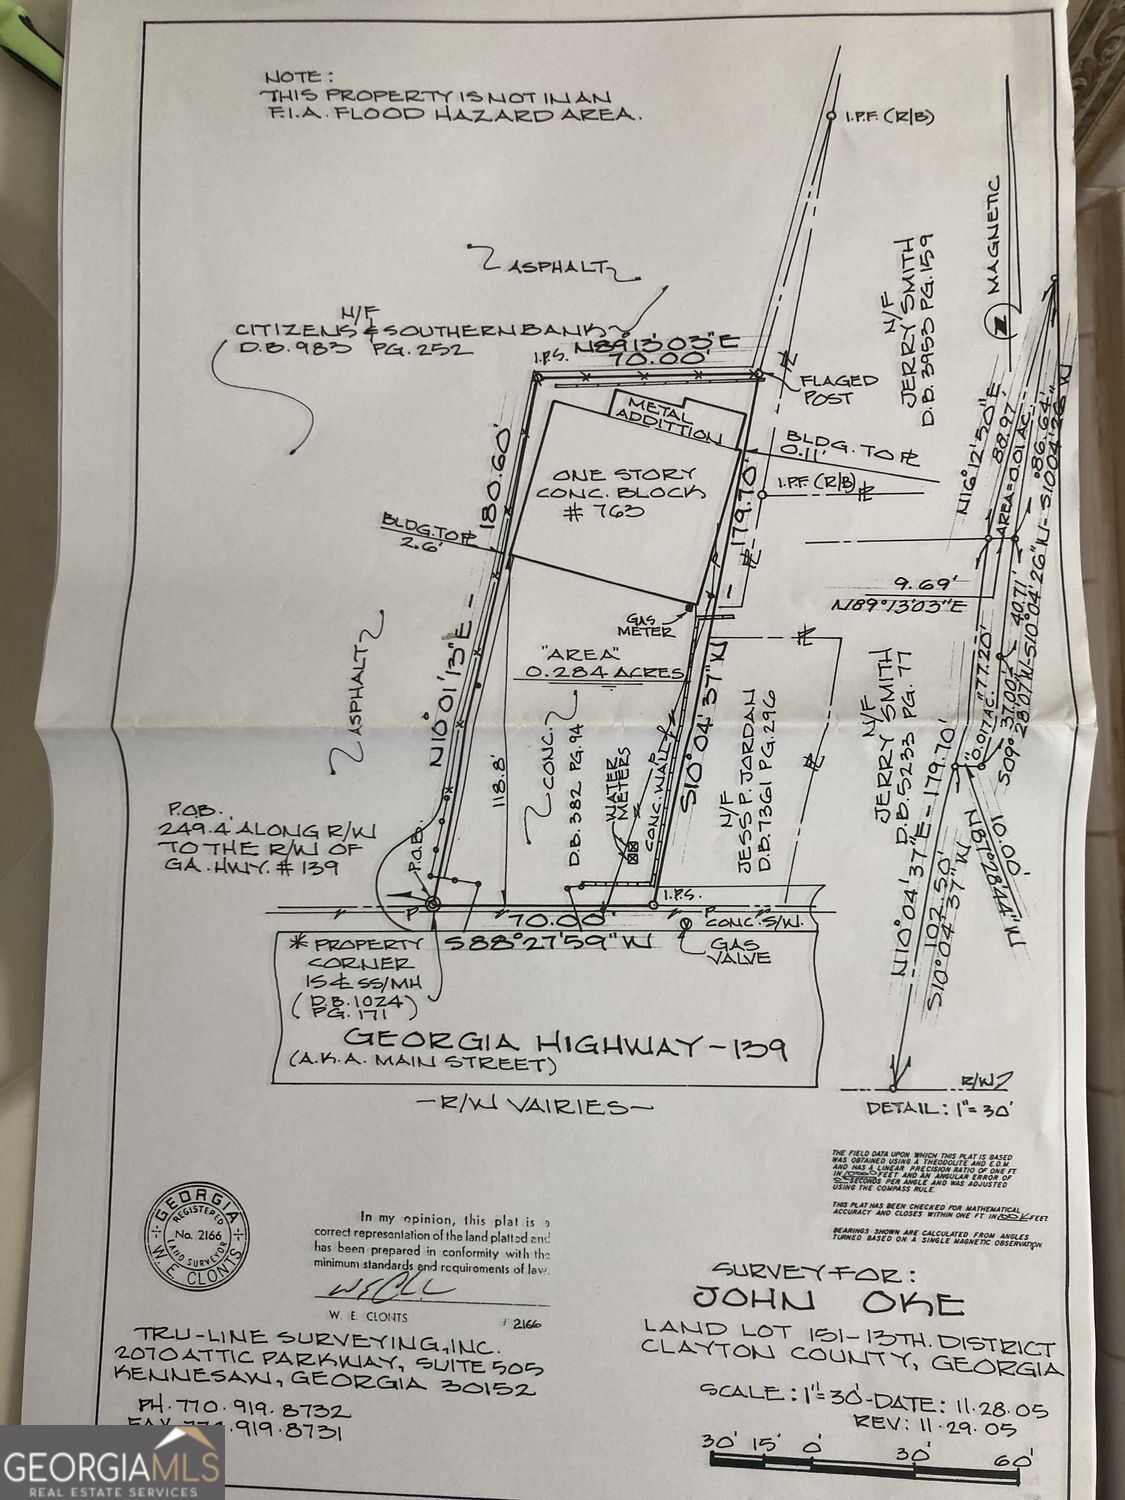 NOTE:
THIS PROPERTY IS NOT IN AN
F.I.A. FLOOD HAZARD AREA.
I.P.F. (R/B)
MAGNETIC
ASPHALT
N/F
JERRY SMITH
D.B. 3953 PG. 159
N/F
CITIZENS & SOUTHERN BANK
D.B. 983 PG. 252
I.P.S.
N89°13'03"E
70.00'
FLAGED
POST
METAL
ADDITTION
BLDG. TO ℄
0.11'
I.P.F. (R/B)
ONE STORY
CONC. BLOCK
# 763
180.60'
179.70'
BLDG. TO ℄
2.6'
N16°12'50"E
88.97'
AREA=0.01 AC.
86.64'
S10°04'26"W
9.69'
N189°13'03"E
GAS
METER
"AREA"
0.284 ACRES
ASPHALT
N10°01'13"E -
S10°04'37"W
118.8'
CONC.
D.B. 382 PG. 94
WATER
METERS
CONC. WALL
N/F
JESS P. JORDAN
D.B. 7361 PG. 296
N/F
JERRY SMITH
D.B. 5233 PG. 77
77.20'
0.017 AC.
40.71'
S10°04'26"W
S09°37'00"W
28.07'
N10°04'37"E - 179.70'
102.50'
S10°04'37"W
10.00'
P.O.B.
249.4 ALONG R/W
TO THE R/W OF
GA. HWY. # 139
P.O.B.
I.P.S.
P
P
70.00'
S88°27'59"W
CONC. S/W.
GAS
VALVE
* PROPERTY
CORNER
IS ℄ SS/MH
(D.B. 1024)
PG. 171
GEORGIA HIGHWAY-139
(A.K.A. MAIN STREET)
-R/W VAIRIES-
R/W
DETAIL: 1"=30'
THE FIELD DATA UPON WHICH THIS PLAT IS BASED
WAS OBTAINED USING A THEODOLITE AND E.D.M.
AND HAS A LINEAR PRECISION RATIO OF ONE FT.
IN FEET AND AN ANGULAR ERROR OF
SECONDS PER ANGLE AND WAS ADJUSTED
USING THE COMPASS RULE.
THIS PLAT HAS BEEN CHECKED FOR MATHEMATICAL
ACCURACY AND CLOSES WITHIN ONE FT. IN FEET
BEARINGS SHOWN ARE CALCULATED FROM ANGLES
TURNED BASED ON A SINGLE MAGNETIC OBSERVATION.
GEORGIA
REGISTERED
No. 2166
LAND SURVEYOR
W. E. CLONTS
In my opinion, this plat is a
correct representation of the land platted and
has been prepared in conformity with the
minimum standards and requirements of law.
W. E. CLONTS
# 2166
TRU-LINE SURVEYING, INC.
2070 ATTIC PARKWAY, SUITE 505
KENNESAW, GEORGIA 30152
PH. 770. 919. 8732
FAX 770.919.8731
SURVEY FOR:
JOHN OKE
LAND LOT 151-13TH. DISTRICT
CLAYTON COUNTY, GEORGIA
SCALE: 1"=30'-DATE: 11.28.05
REV: 11.29.05
30' 15' 0' 30' 60'
GEORGIAMLS
REAL ESTATE SERVICES